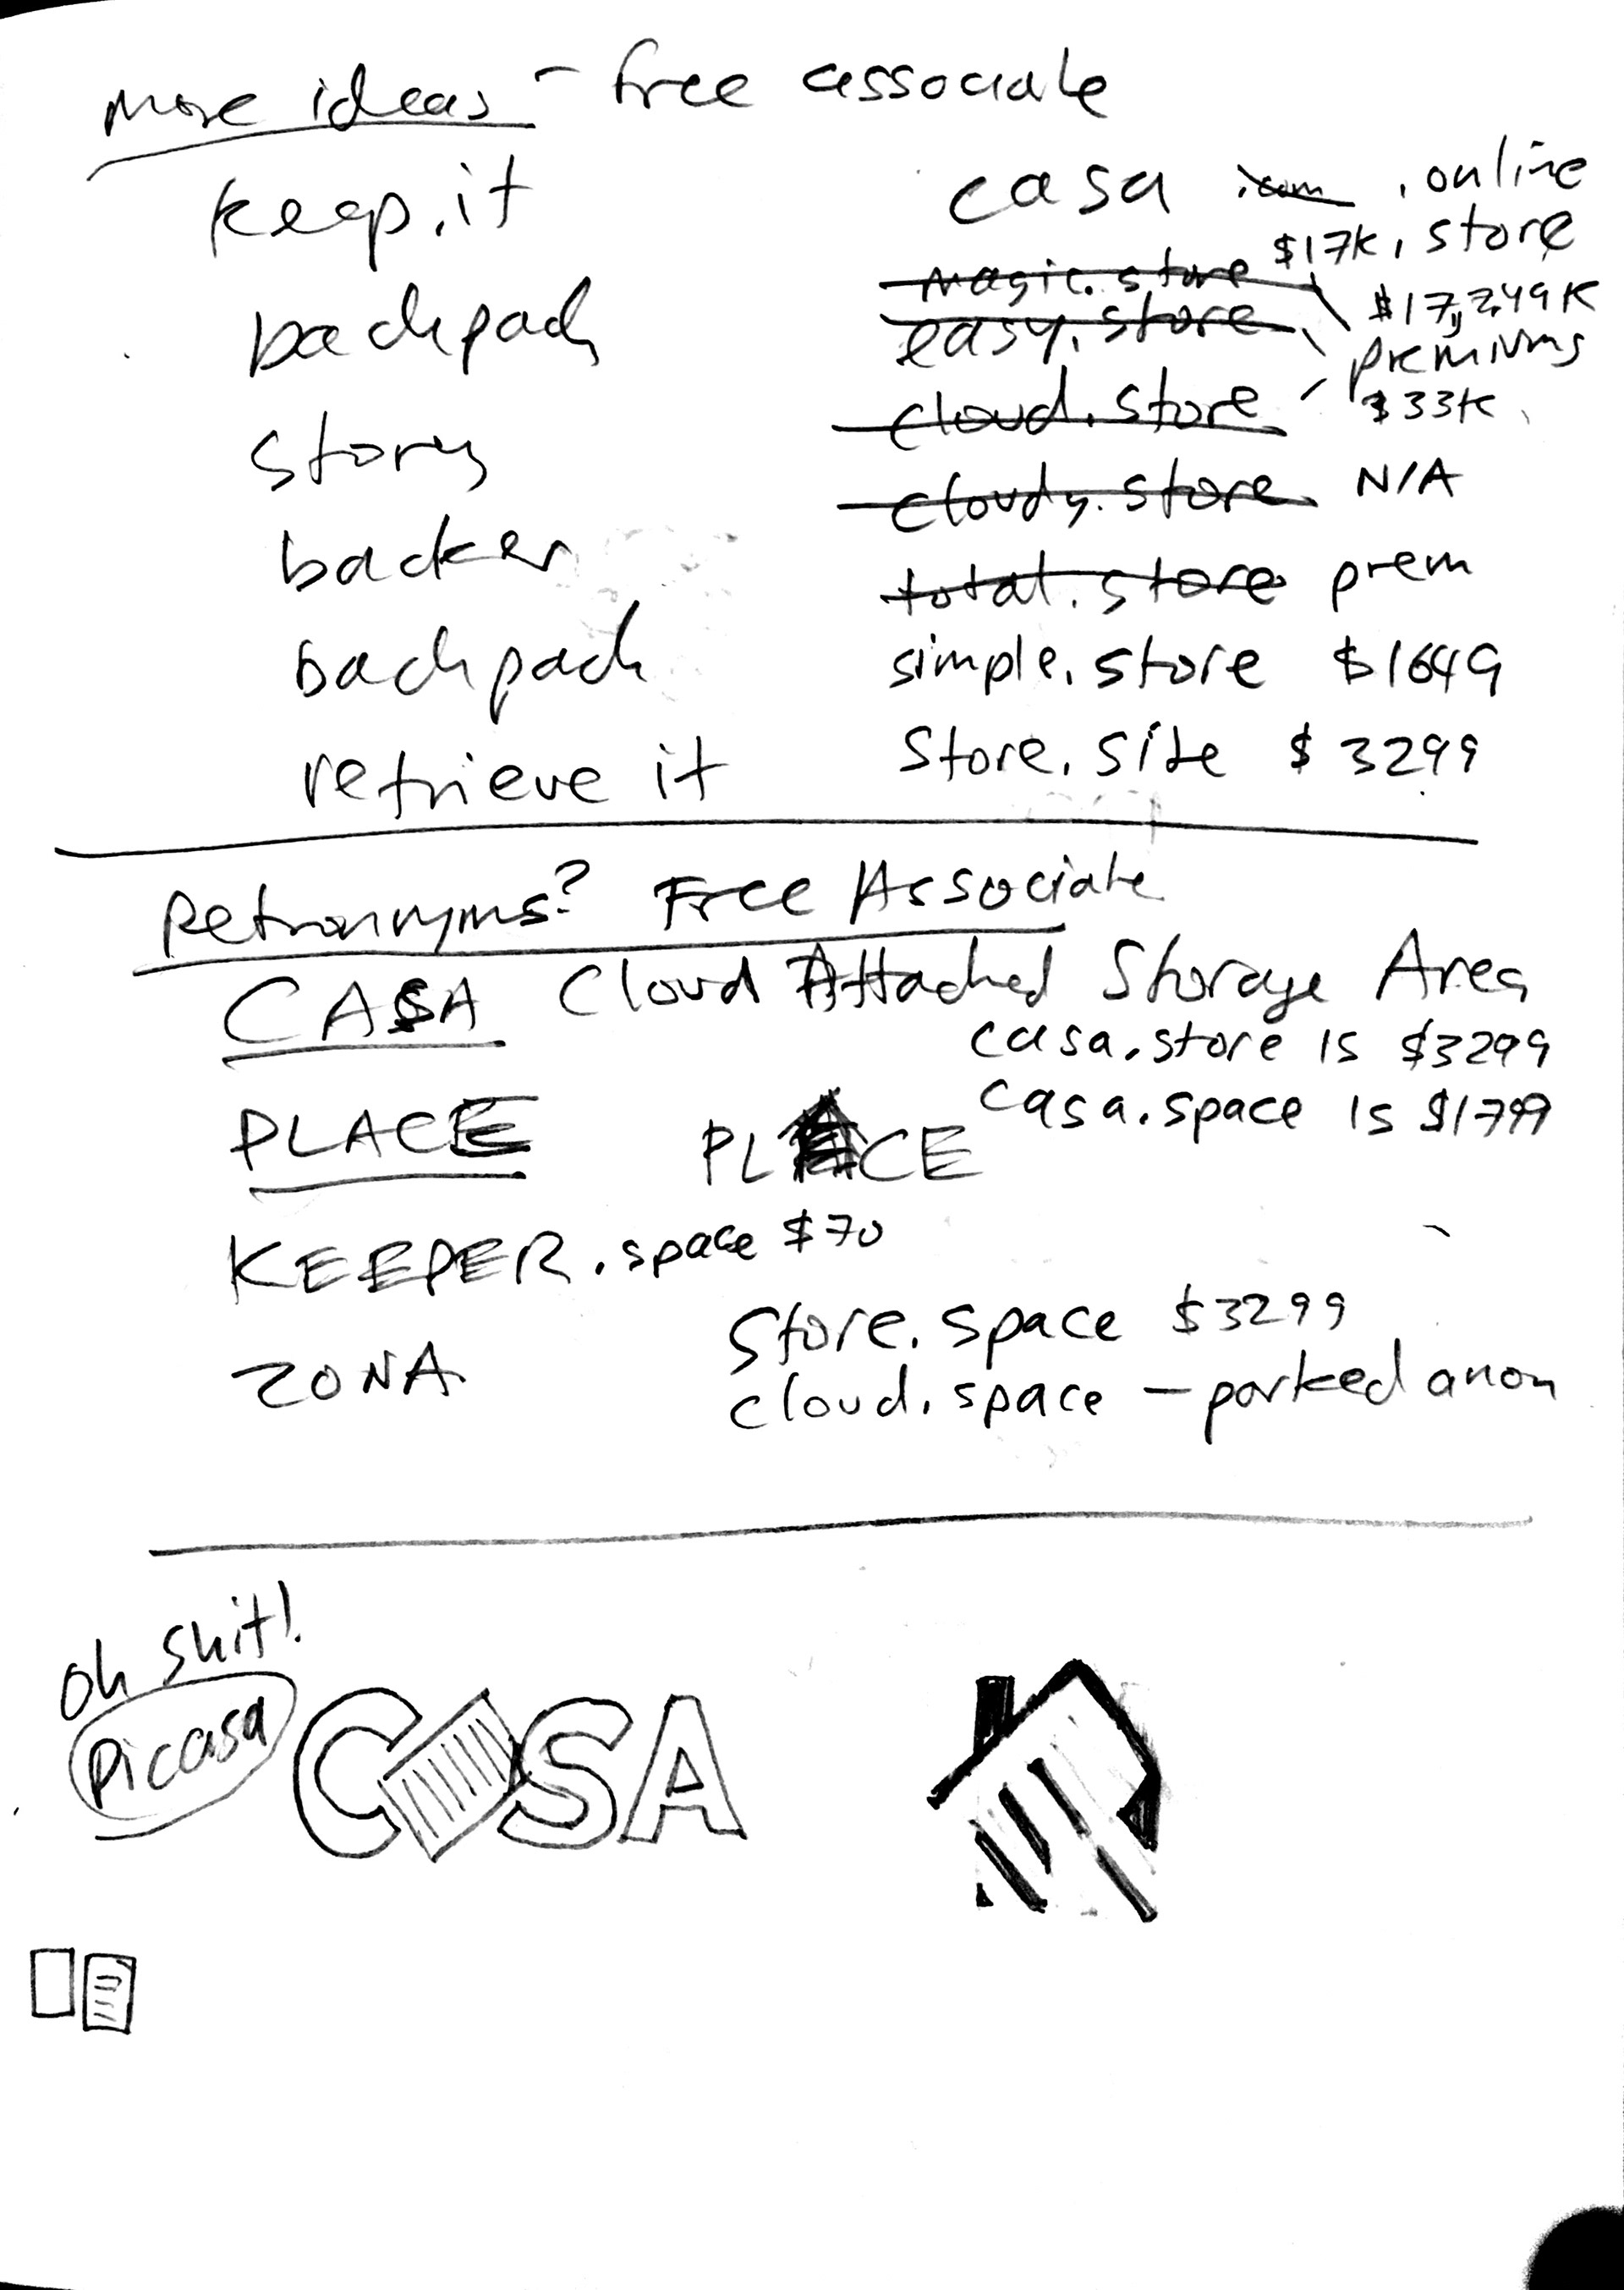 More ideas - free associate
keep.it
backpack
story
backer
backpack
retrieve it
casa .com .online
$17K .store
magic.store
easy.store $17,249K
premiums
cloud.store $33K
cloudy.store N/A
total.store prem
simple.store $1649
Store.site $3299
Retronnyms? Free Associate
CASA Cloud Attached Storage Area
casa.store is $3299
casa.space is $1799
PLACE PLACE
KEEPER.space $70
ZONA
Store.space $3299
cloud.space - parked anon
Oh shit!
Picasa
CASA